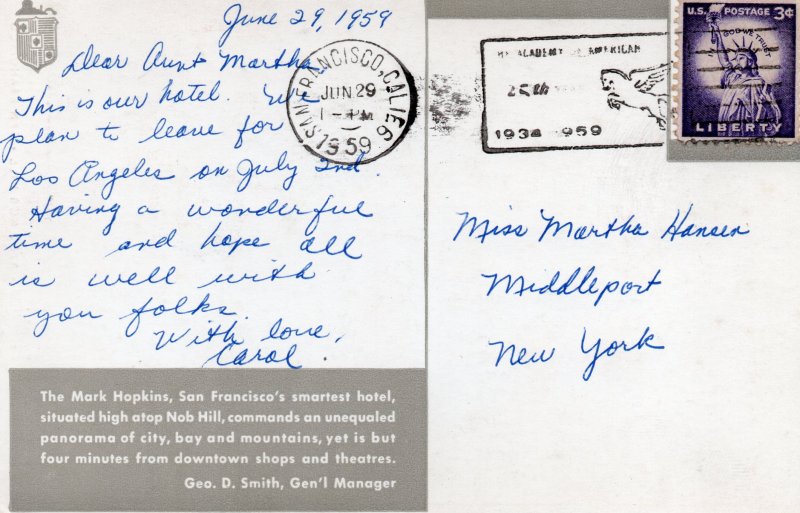 June 29, 1959
Dear Aunt Martha
This is our hotel. We
plan to leave for
Los Angeles on July 2nd.
Having a wonderful
time and hope all
is well with
you folks.
With love,
Carol.
The Mark Hopkins, San Francisco's smartest hotel,
situated high atop Nob Hill, commands an unequaled
panorama of city, bay and mountains, yet is but
four minutes from downtown shops and theatres.
Geo. D. Smith, Gen'l Manager
SAN FRANCISCO, CALIF. 6
JUN 29
PM
1959
ACADEMY AMERICAN
25th
1934 1959
U.S. POSTAGE 3¢
IN GOD WE TRUST
LIBERTY
Miss Martha Hansen
Middleport
New York